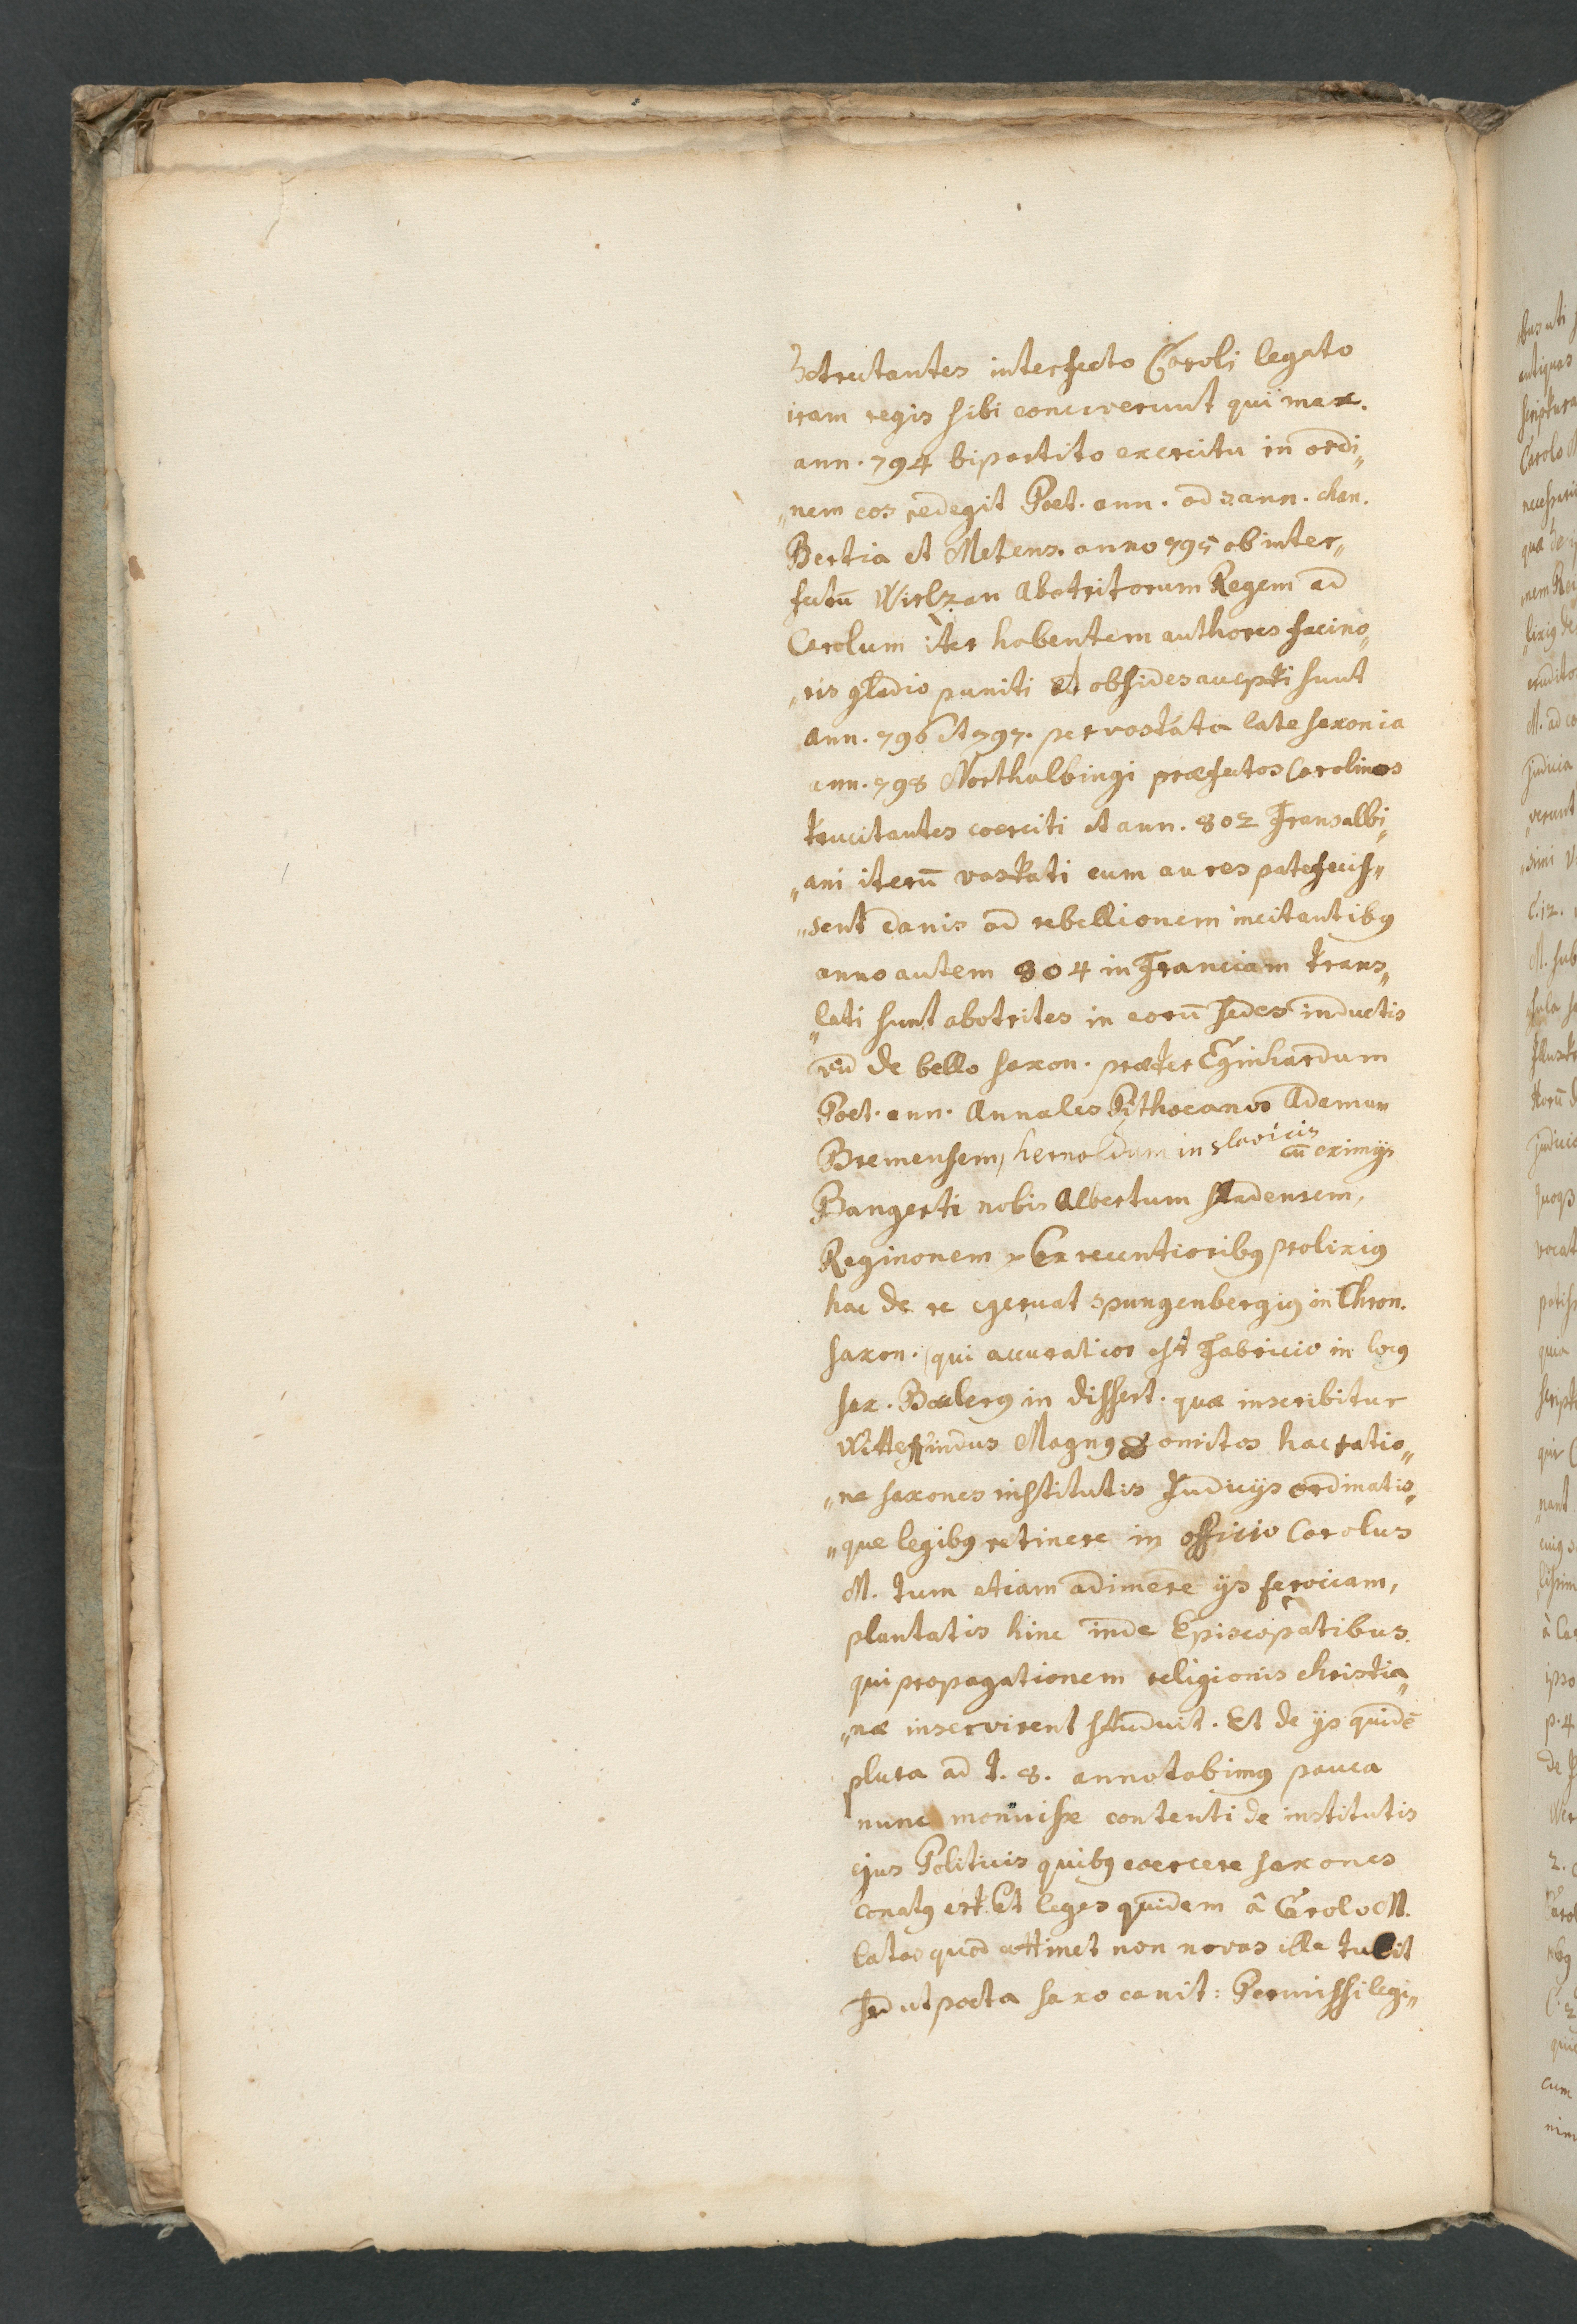 detrectantes interfecto Caroli legato
iram regis sibi conciverunt qui max.
ann. 794 bipartito exercitu in ordi„
„nem eos redegit Poet. ann. ad ann. chan.
Bertia et Metens. anno 795 ob inter„
fectū Wirlzan Abotritorum Regem ad
Carolum iter habentem authores facino„
„ris gladio puniti et obsides accepti sunt
ann. 796 et 797. per vastata late saxonia
ann. 798 Northalbingi præfectos Carolinos
trucitantes coerciti et ann. 802 Transalbi„
„ani iterū vastati cum aures patefecis„
„sent danis ad rebellionem incitantibus
anno autem 804 in Franciam trans„
„lati sunt abotrites in eorū sedes inductis
vid de bello saxon. præter Eginhardum
Poet. ann. Annales Pithoeanos Ademum
Bremensem, hernoldum in slavicis cū eximijs
Bangerti nobis Albertum stadensem,
Reginonem Ex recentioribus prolixius
hac de re egerunt spangenbergius in Chron.
saxon. (qui accuratior est Fabricio in locus
sax. Boeclerus in dissert. quæ inscribitur
Wittekindus Magnus omitos hac ratio„
„ne saxones institutis Judicijs ordinatis„
„que legibus retinere in officio Carolus
M. tum etiam adimere ijs ferociam,
plantatis hinc inde Episcopatibus.
qui propagationem religionis christia„
„næ inservirent studuit. Et de ijs quidē
plura ad t. 8. annotabimus pauca
nunc monuisse contenti de institutis
ejus Politicis quibus coercere saxones
conatus est. Et leges quidem â Carolo M.
latas quod attinet non novas ille tulit
sed ut poeta saxo canit: Permissi legi„